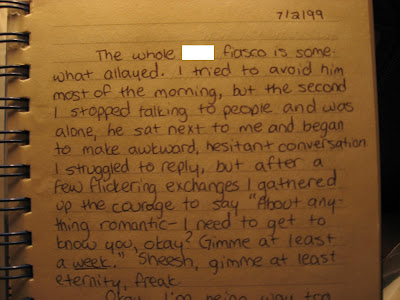 7/2/99
The whole fiasco is some-
what allayed. I tried to avoid him
most of the morning, but the second
I stopped talking to people and was
alone, he sat next to me and began
to make awkward, hesitant conversation.
I struggled to reply, but after a
few flickering exchanges I gathered
up the courage to say "About any-
thing romantic- I need to get to
know you, okay? Gimme at least
a week." Sheesh, gimme at least
eternity, freak.
Okay, I'm being way too